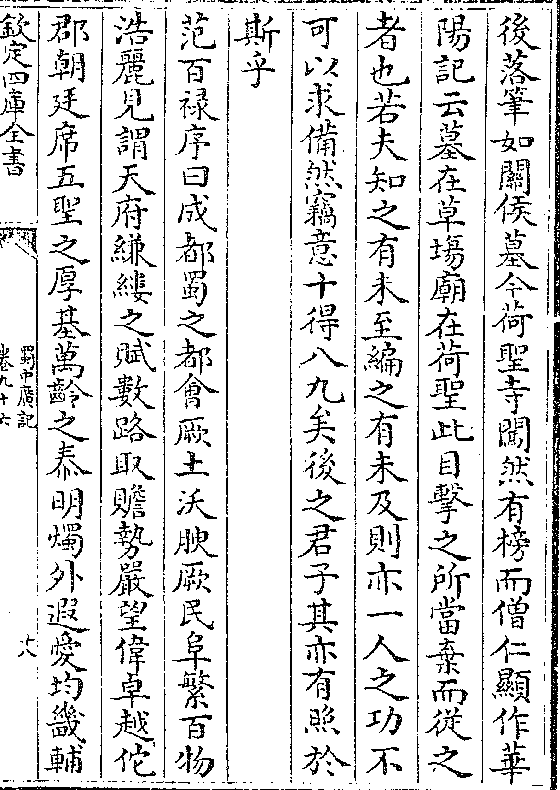 後落筆如關侯墓今荷聖寺闖然有榜而僧仁顯作華
陽記云墓在草塲廟在荷聖此目擊之所當棄而從之
者也若夫知之有未至編之有未及則亦一人之功不
可以求備然竊意十得八九矣後之君子其亦有照於
斯乎
范百禄序曰成都蜀之都會厥土沃腴厥民阜繁百物
浩麗見謂天府縑縷之賦數路取贍勢嚴望偉卓越佗
郡朝廷席五聖之厚基萬齡之泰明燭外遐愛均畿輔
欽定四庫全書
蜀中廣記
卷九十六